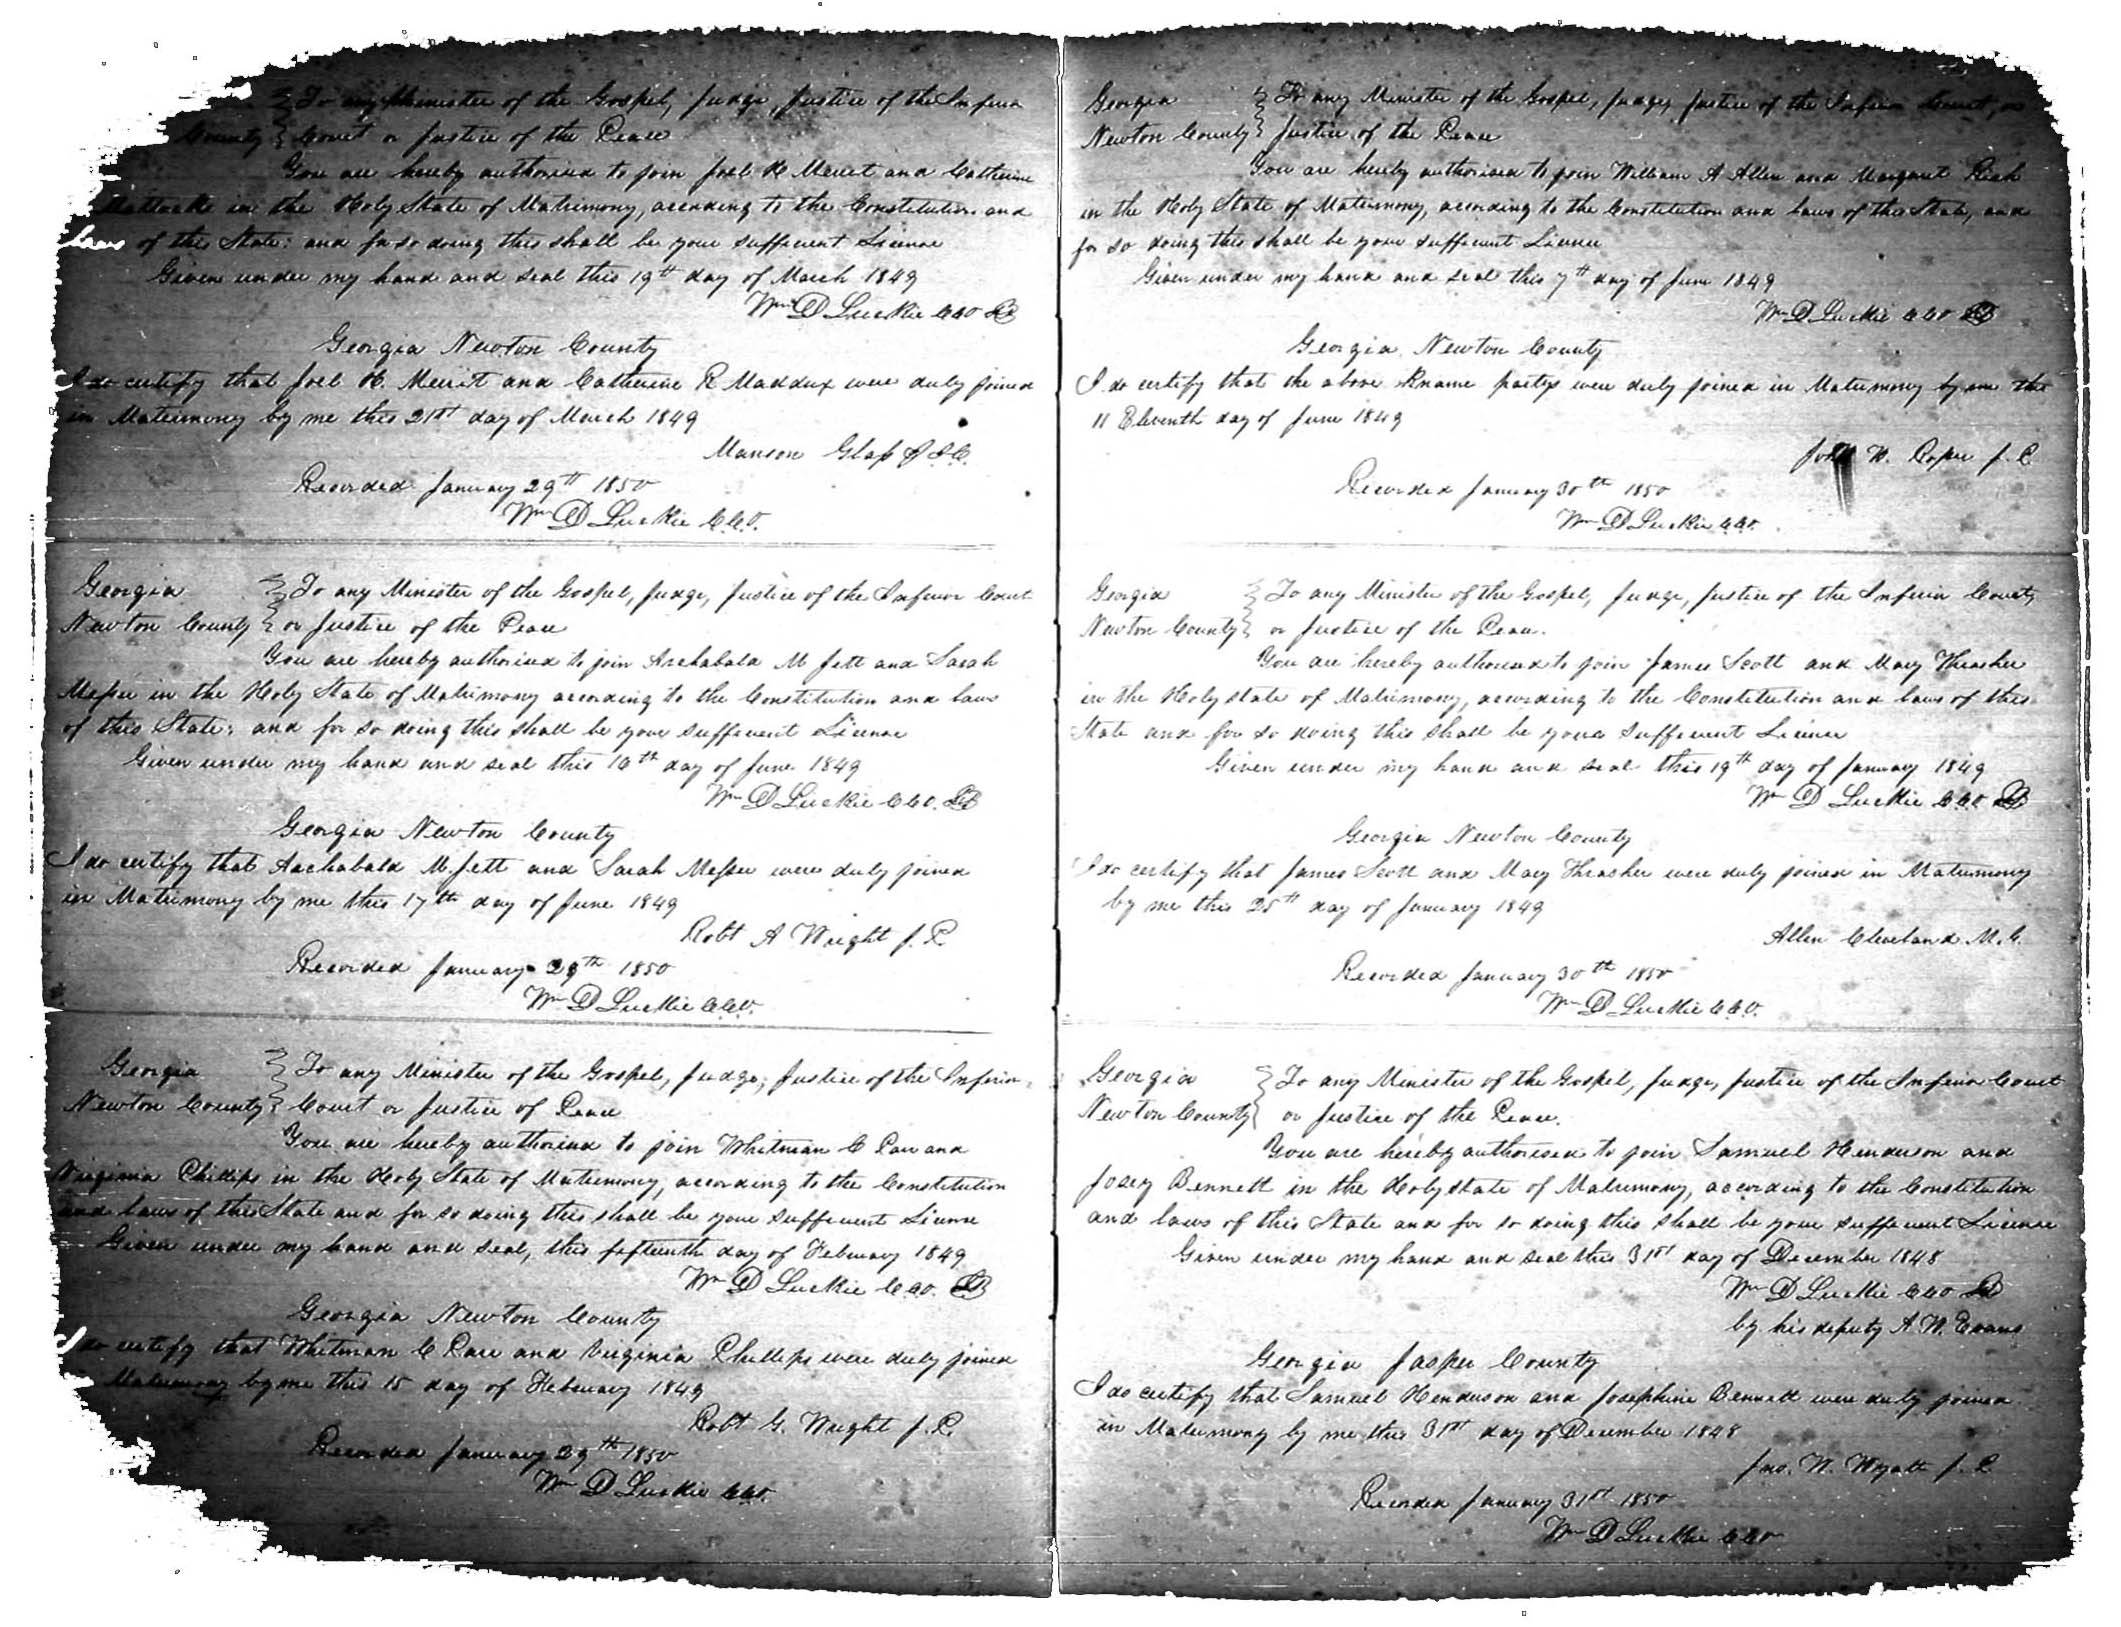 To any Minister of the Gospel, Judge, Justice of the Inferior
County Court or Justice of the Peace
You are hereby authorised to join Joel H Merrit and Catherine
in the Holy State of Matrimony, according to the Constitution and
laws of this State: and for so doing this shall be your sufficient License
Given under my hand and seal this 19th day of March 1849
Wm D Luckie CCO LS
Georgia Newton County
I do certify that Joel H. Merritt and Catherine R Maddux were duly joined
in Matrimony by me this 21st day of March 1849
Manson Glass J.I.C.
Recorded January 29th 1850
Wm D Luckie C.C.O.
Georgia To any Minister of the Gospel, Judge, Justice of the Inferior Court
Newton County or Justice of the Peace
You are hereby authorised to join Archabald M Jett and Sarah
Messer in the Holy State of Matrimony according to the Constitution and laws
of this State; and for so doing this shall be your sufficient License
Given under my hand and seal this 16th day of June 1849
Wm D Luckie CCO. LS
Georgia Newton County
I do certify that Archabald M. Jett and Sarah Messer were duly joined
in Matrimony by me this 17th day of June 1849
Robt A Wright J. P.
Recorded January 29th 1850
Wm D Luckie C.C.O.
Georgia To any Minister of the Gospel, Judge, Justice of the Inferior
Newton County Court or Justice of Peace
You are hereby authorised to join Whitman C Parr and
Virginia Phillips in the Holy State of Matrimony, according to the Constitution
and laws of this State and for so doing this shall be your sufficient License
Given under my hand and seal, this fifteenth day of February 1849
Wm D Luckie C.C.O. LS
Georgia Newton County
I do certify that Whitman C Parr and Virginia Phillips were duly joined
Matrimony by me this 15 day of February 1849
Robt G. Wright J. P.
Recorded January 29th 1850
Wm D Luckie CCO.
Georgia To any Minister of the Gospel, Judge, Justice of the Inferior Court, or
Newton County Justice of the Peace
You are hereby authorised to join William A Allen and Margaret
in the Holy State of Matrimony, according to the Constitution and laws of this State, and
for so doing this shall be your sufficient License
Given under my hand and seal this 7th day of June 1849
Wm D Luckie CCO LS
Georgia Newton County
I do certify that the above name partys were duly joined in Matrimony by me the
11 Eleventh day of June 1849
W. Roper J. P.
Recorded January 30th 1850
Wm D Luckie CCO.
Georgia To any Minister of the Gospel, Judge, Justice of the Inferior Court,
Newton County or Justice of the Peace.
You are hereby authorised to join James Scott and Mary Thrasher
in the Holy state of Matrimony, according to the Constitution and laws of this
State and for so doing this shall be your sufficient License
Given under my hand and seal this 19th day of January 1849
Wm D Luckie CCO LS
Georgia Newton County
I do certify that James Scott and Mary Thrasher were duly joined in Matrimony
by me this 25th day of January 1849
Allen Cleveland M.G.
Recorded January 30th 1850
Wm D Luckie C.C.O.
Georgia To any Minister of the Gospel, Judge, Justice of the Inferior Court
Newton County or Justice of the Peace.
You are hereby authorised to join Samuel Henderson and
Josey Bennett in the Holy state of Matrimony, according to the Constitution
and laws of this State and for so doing this shall be your sufficient License
Given under my hand and seal this 31st day of December 1848
Wm D Luckie CCO LS
by his deputy A W. Evans
Georgia Jasper County
I do certify that Samuel Henderson and Josephine Bennett were duly joined
in Matrimony by me this 31st day of December 1848
Jno. W. Wyatt J. P.
Recorded January 31st 1850
Wm D Luckie CCO